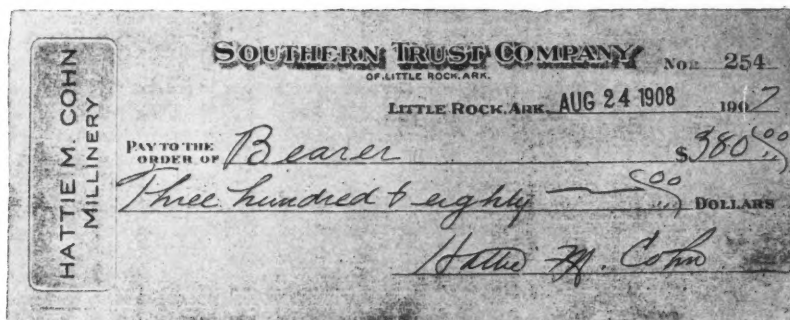 HATTIE M. COHN
MILLINERY
SOUTHERN TRUST COMPANY
OF LITTLE ROCK, ARK.
No. 254
LITTLE ROCK, ARK. AUG 24 1908 1907
PAY TO THE ORDER OF Bearer $380 00
Three hundred & eighty — 00 DOLLARS
Hattie M. Cohn